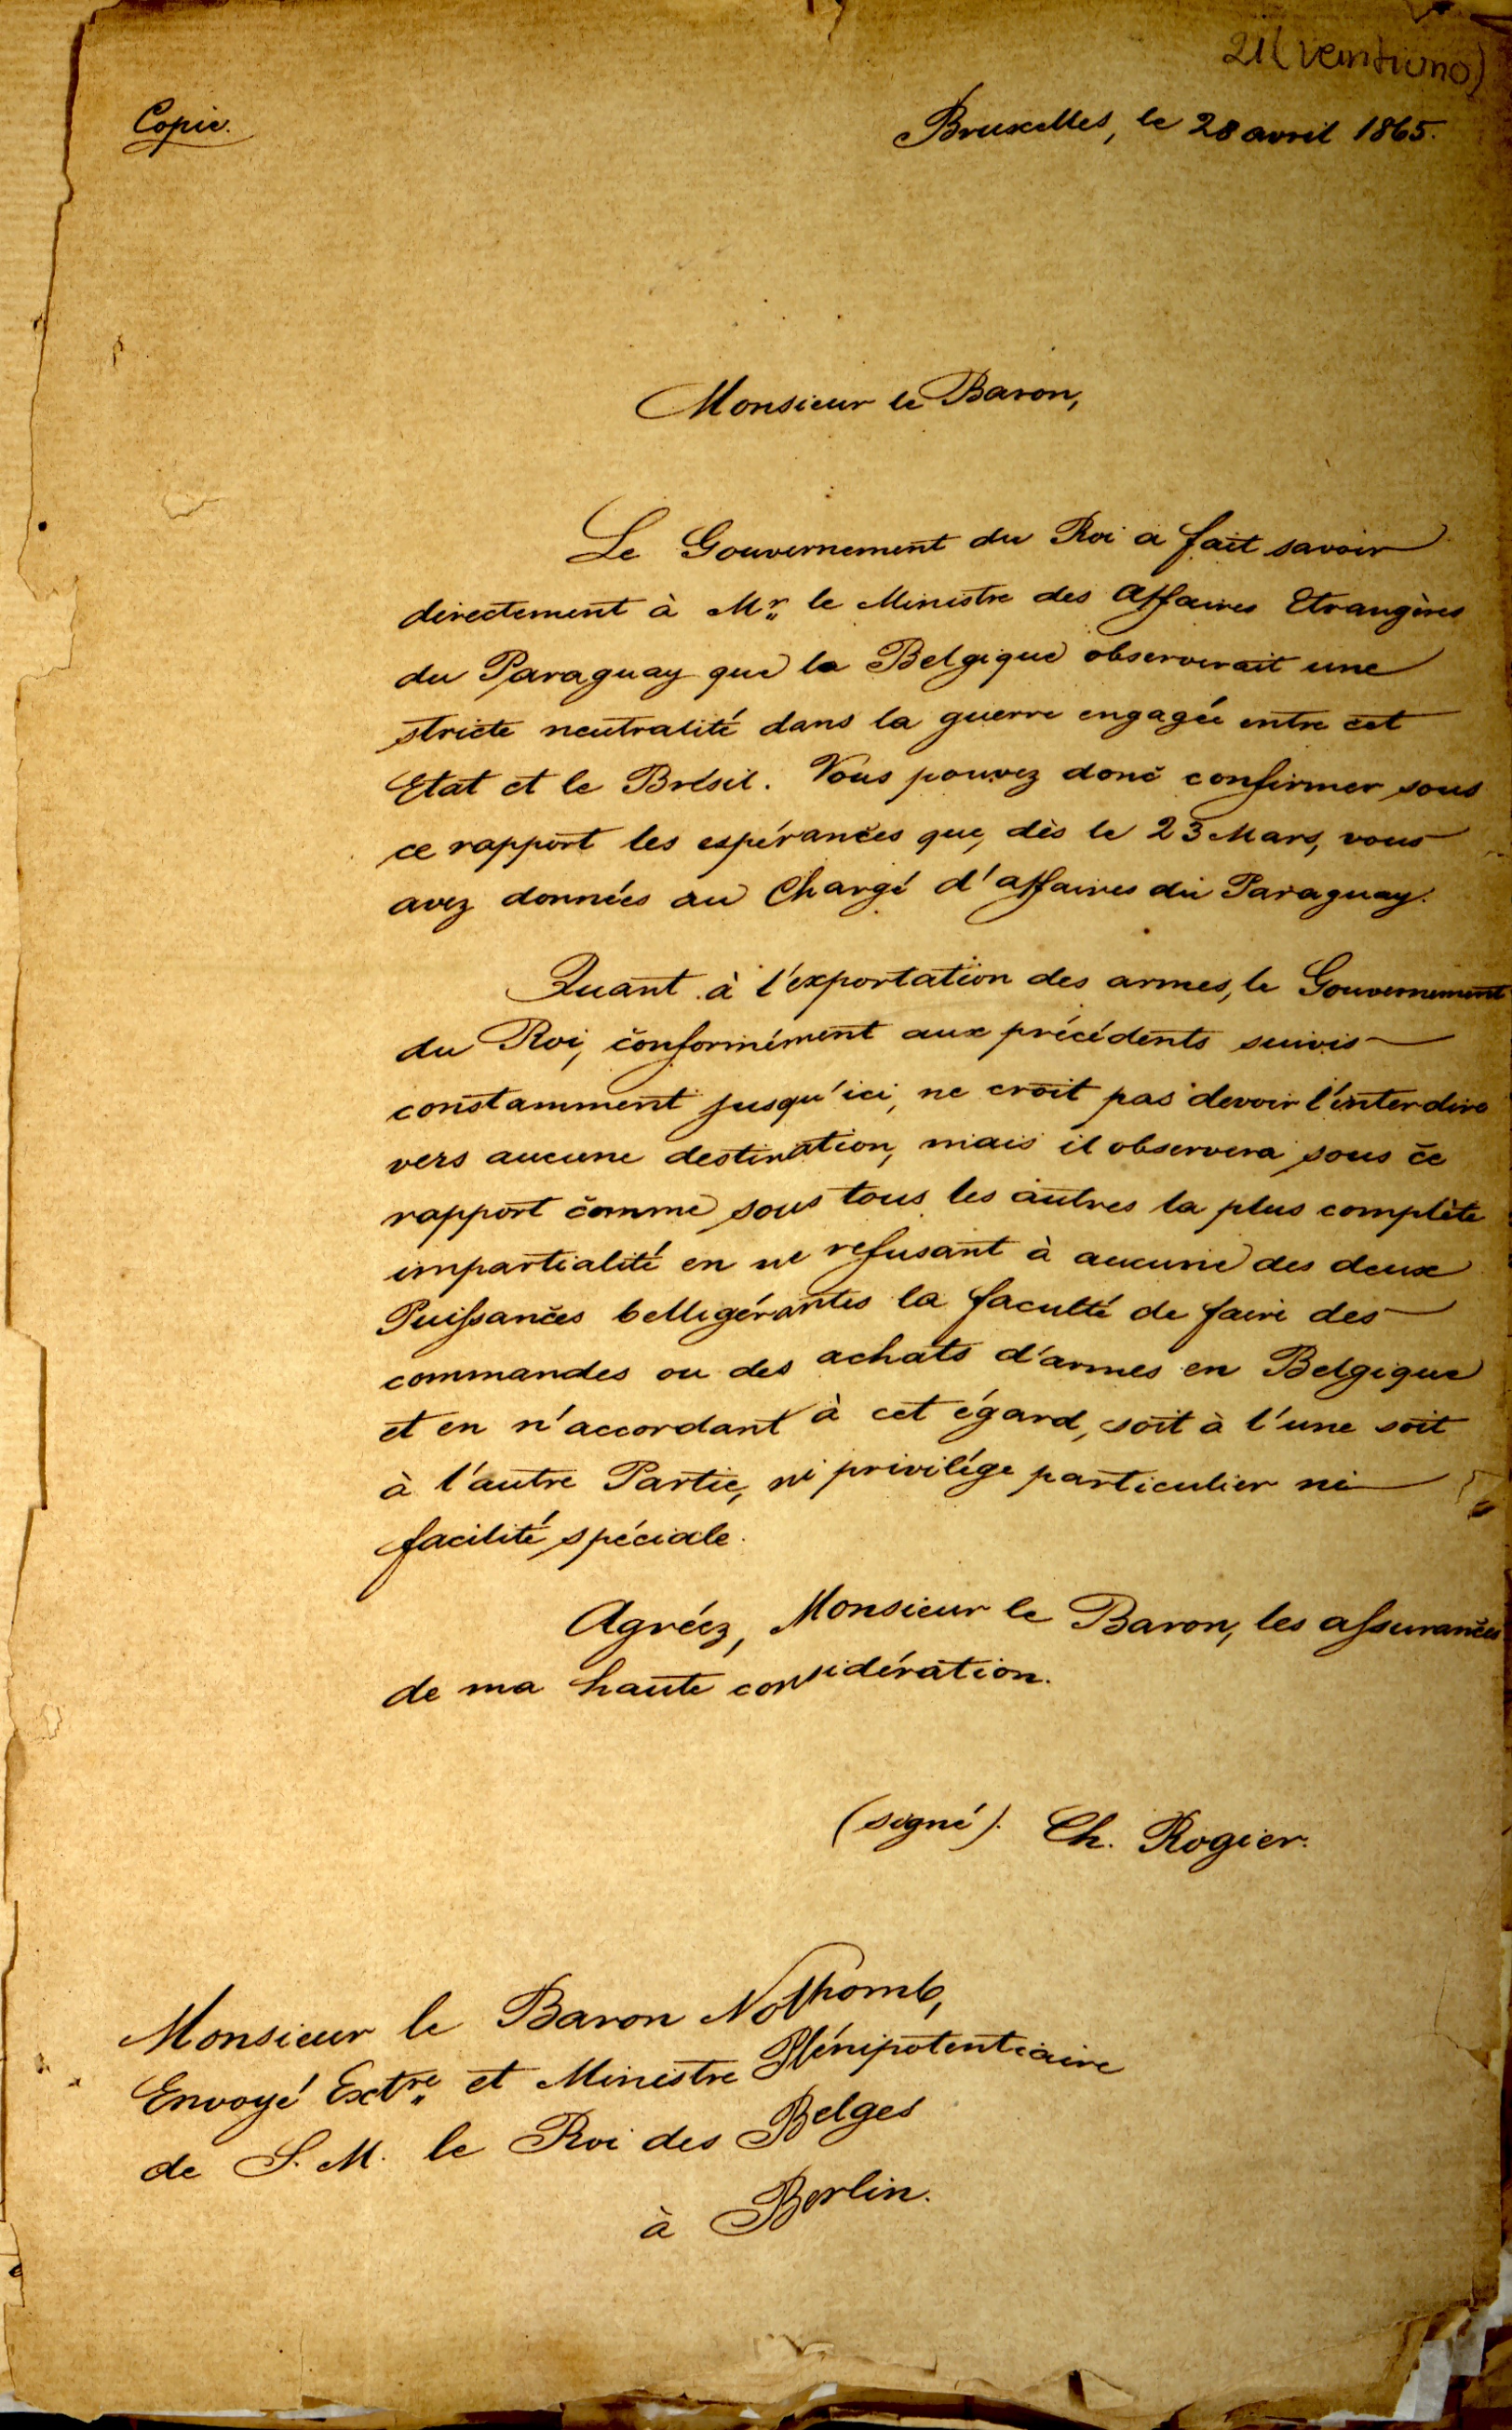 21 (veintiuno)
Copie.
Bruxelles, le 28 avril 1865.
Monsieur le Baron,
Le Gouvernement du Roi a fait savoir
directement à Mr. le Ministre des Affaires Etrangères
du Paraguay que la Belgique observerait une
stricte neutralité dans la guerre engagée entre cet
Etat et le Brésil. Vous pouvez donc confirmer sous
ce rapport les espérances que, dès le 23 Mars, vous
avez données au Chargé d'affaires du Paraguay.
Quant à l'exportation des armes, le Gouvernement
du Roi, conformément aux précédents suivis
constamment jusqu'ici, ne croit pas devoir l'interdire
vers aucune destination, mais il observera sous ce
rapport comme sous tous les autres la plus complète
impartialité en ne refusant à aucune des deux
Puissances belligérantes la faculté de faire des
commandes ou des achats d'armes en Belgique
et en n'accordant à cet égard, soit à l'une soit
à l'autre Partie, ni privilége particulier ni
facilité spéciale.
Agréez, Monsieur le Baron, les assurances
de ma haute considération.
(signé). Ch. Rogier.
Monsieur le Baron Nothomb,
Envoyé Extre. et Ministre Plénipotentiaire
de S. M. le Roi des Belges
à Berlin.